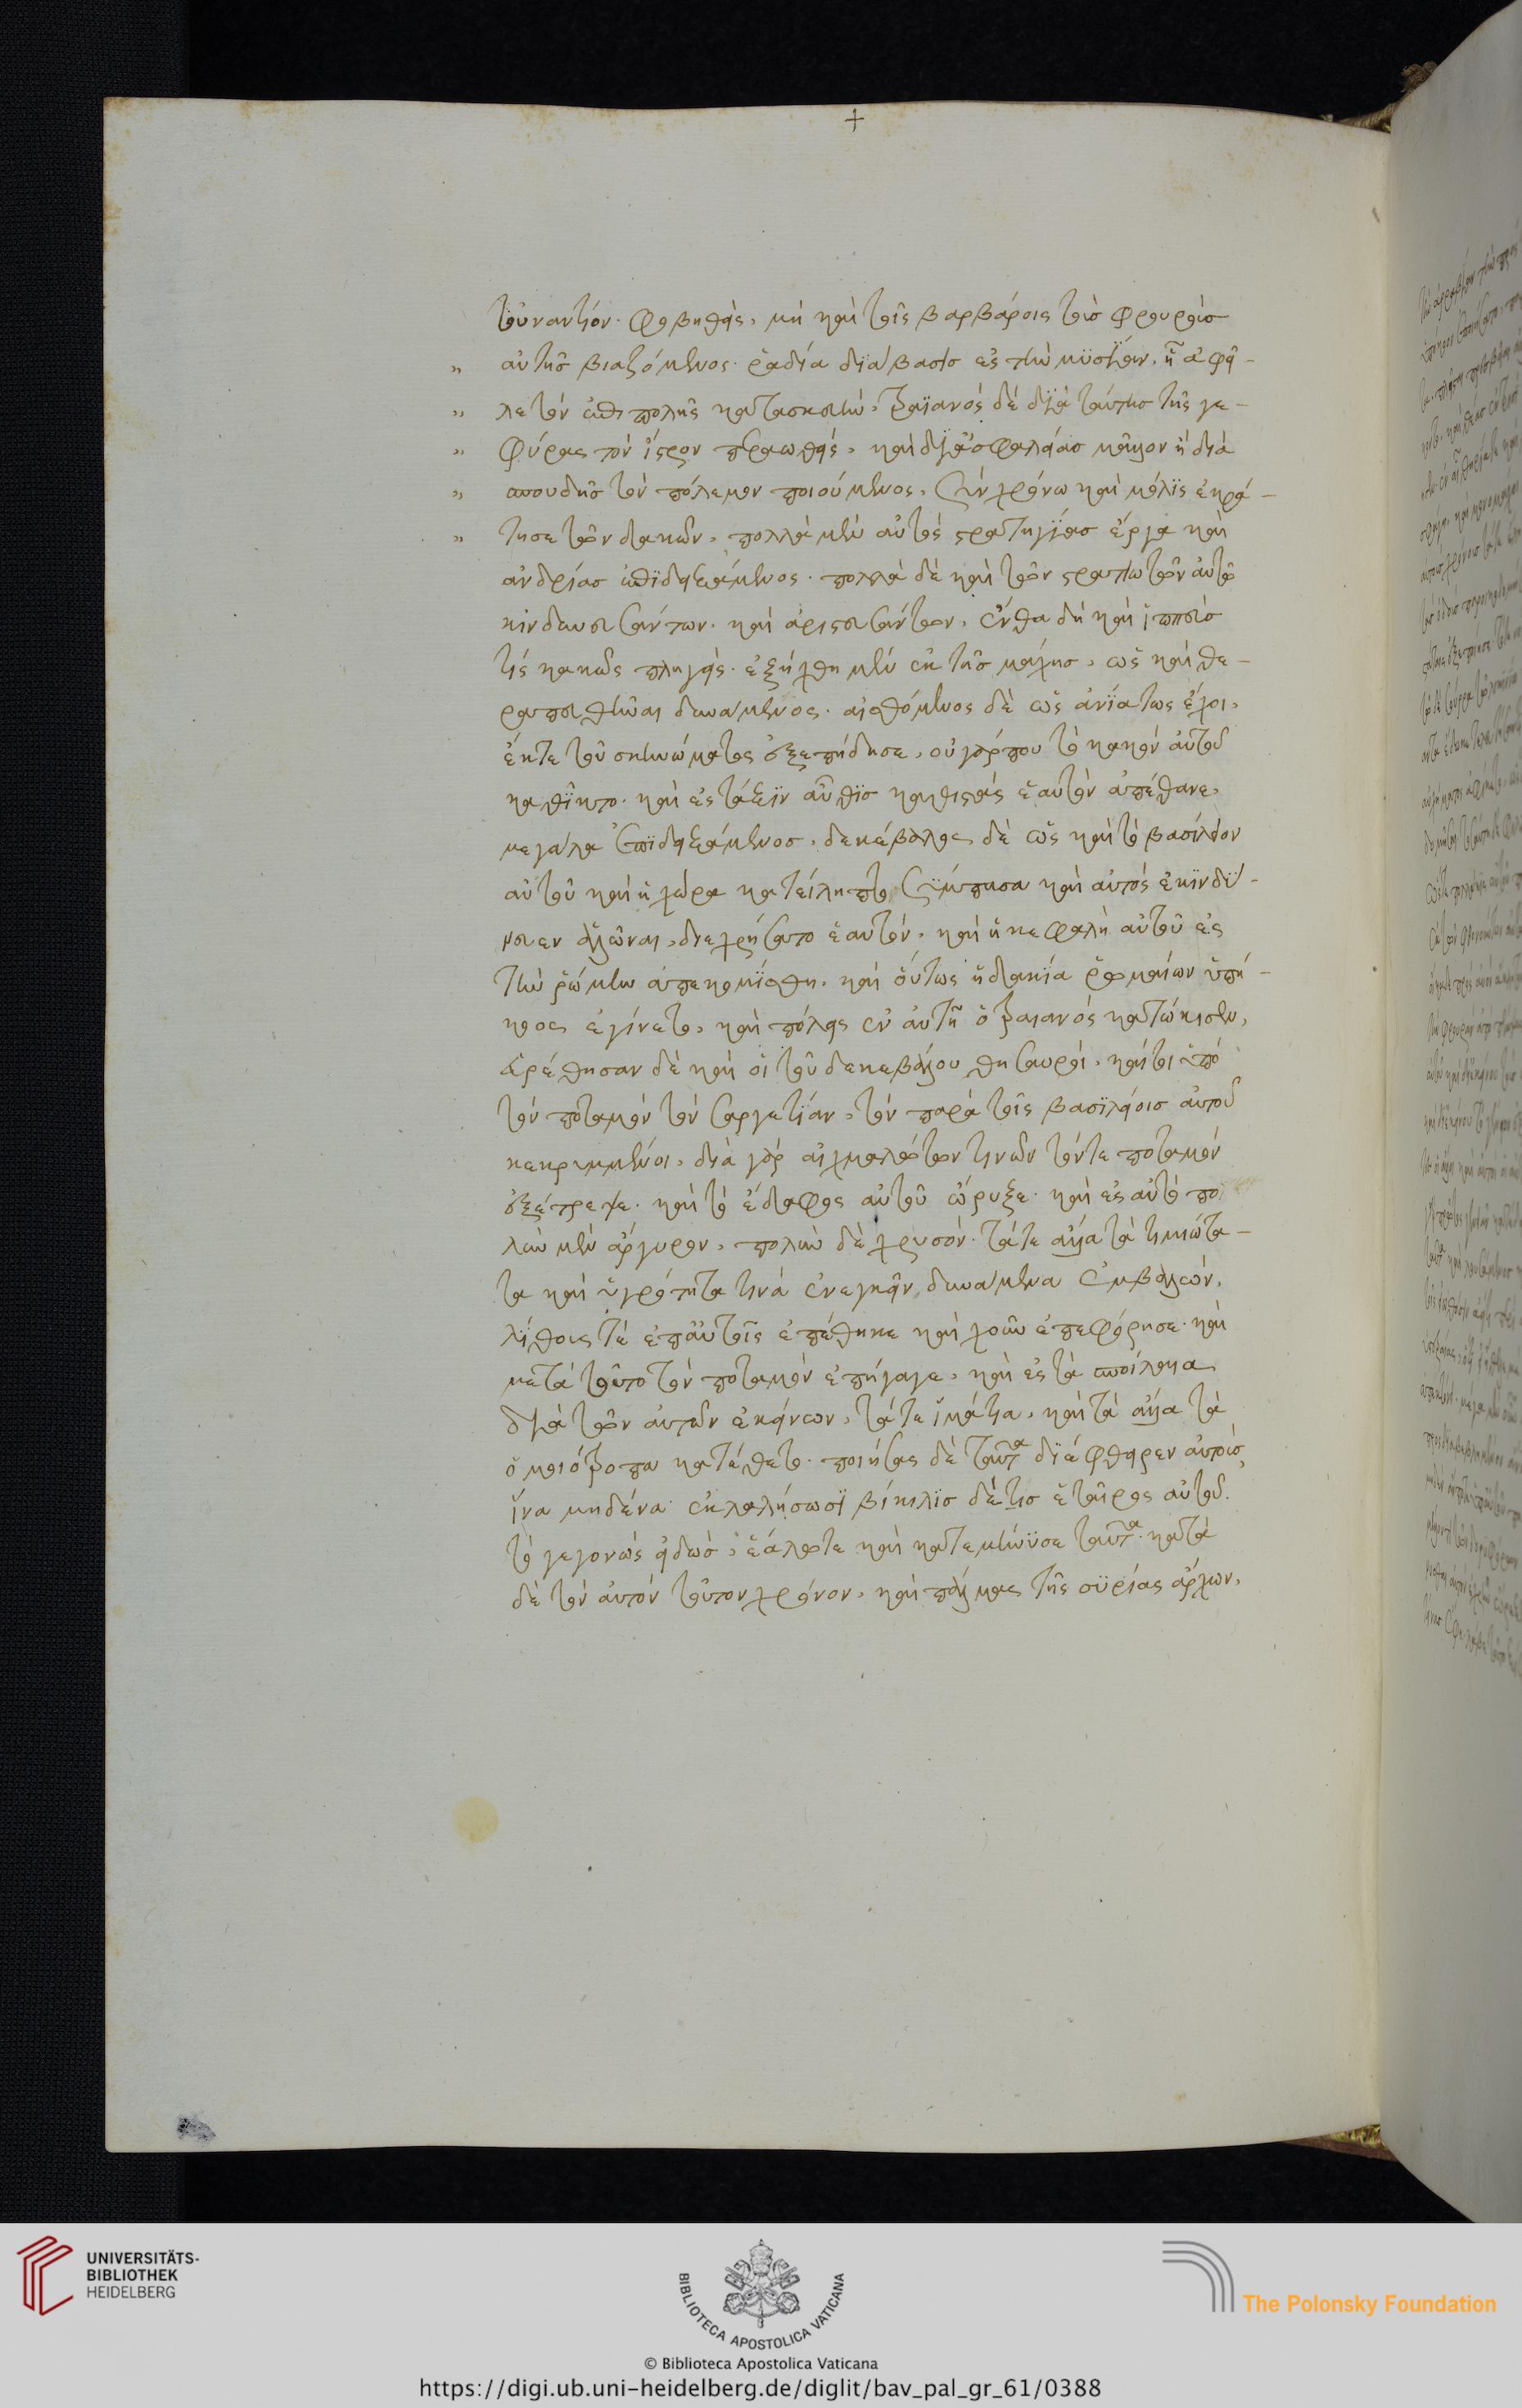 +
τοὐναντίον φοβηθεὶς, μὴ καὶ τοῖς βαρβάροις τοὺς φρουροὺς
„ αὐτῆς βιαζομένοις ῥαδία διάβασις ἐς τὴν μυσίαν ᾖ ἀφεῖ-
„ λε τὴν ἐπιπολῆς κατασκευὴν, τραϊανὸς δὲ διὰ ταύτης τῆς γε-
„ φύρας τὸν ἴστρον περαιωθεὶς, καὶ δι' ἀσφαλείας μᾶλλον ἢ διὰ
„ σπουδῆς τὸν πόλεμον ποιούμενος, σὺν χρόνω καὶ μόλις ἐκρά-
„ τησε τῶν δακῶν, πολλὰ μὲν αὐτὸς στρατηγίας ἔργα καὶ
ἀνδρίας ἐπιδειξάμενος, πολλὰ δὲ καὶ τῶν στρατιωτῶν αὐτῶ
κινδυνευσάντων καὶ ἀριστευσάντων, ἔνθα δὴ καὶ ἱππεύς
τίς κακῶς πληγεὶς ἐξήχθη μὲν ἐκ τῆς μάχης, ὡς καὶ θε-
ραπευθῆναι δυνάμενος, αἰσθόμενος δὲ ὡς ἀνίατως ἔχοι,
ἔκ τε τοῦ σκηνώματος ἐξεπήδησε, οὐ γάρ που τὸ κακὸν αὐτοῦ
καθῖκτο, καὶ ἐς τάξιν αὖθις καθιστὰς ἑαυτὸν ἀπέθανε,
μεγάλα ἐπιδειξάμενος, δεκέβαλος δὲ ὡς καὶ τὸ βασίλειον
αὐτοῦ καὶ ἡ χώρα κατείληπτο σύμπασα καὶ αὐτὸς ἐκινδύ-
νευεν ἁλῶναι, διεχρήσατο ἑαυτὸν, καὶ ἡ κεφαλὴ αὐτοῦ ἐς
τὴν ῥώμην ἀπεκομίσθη, καὶ οὕτως ἡ δακία ῥωμαίων ὑπή-
κοος ἐγίνετο, καὶ πόλεις ἐν αὐτῇ ὁ τραιανὸς κατώκισεν,
εὑρέθησαν δὲ καὶ οἱ τοῦ δεκεβάλου θησαυροὶ, καίτοι ὑπὸ
τὸν ποταμὸν τὸν σαργετίαν, τὸν παρὰ τοῖς βασιλείοις αὐτοῦ
κεκρυμμένοι, διὰ γὰρ αἰχμαλώτων τινῶν τόν τε ποταμὸν
ἐξέτρεψε καὶ τὸ ἔδαφος αὐτοῦ ὤρυξε καὶ ἐς αὐτὸ πο
λὺν μὲν ἄργυρον, πολὺν δὲ χρυσόν τά τε ἄλλα τὰ τιμιώτα-
τα καὶ ὑγρότητα τινὰ ἐνεγκεῖν δυνάμενα ἐμβαλὼν,
λίθους τὲ ἐπ' αὐτοῖς ἐπέθηκε καὶ χοῦν ἐπεφόρησε καὶ
μετὰ τοῦτο τὸν ποταμὸν ἐπήγαγε, καὶ ἐς τὰ σπήλαια
διὰ τῶν αὐτῶν ἐκείνων, τά τε ἱμάτια, καὶ τὰ ἄλλα τὰ
ὁμοιότροπα κατέθετο ποιήσας δὲ ταῦτα διέφθειρεν αὐτοὺς
ἵνα μηδένα ἐκλαλήσωσϊ βίκιλις δέ τις ἑταῖρος αὐτοῦ
τὸ γεγονὼς εἰδὼς ἑάλωτε καὶ κατεμήνυσε ταῦτα κατὰ
δὲ τὸν αὐτὸν τοῦτον χρόνον, καὶ πάλμας τῆς συρίας ἄρχων,
UNIVERSITÄTS-
BIBLIOTHEK
HEIDELBERG
BIBLIOTECA APOSTOLICA VATICANA
The Polonsky Foundation
© Biblioteca Apostolica Vaticana
https://digi.ub.uni-heidelberg.de/diglit/bav_pal_gr_61/0388